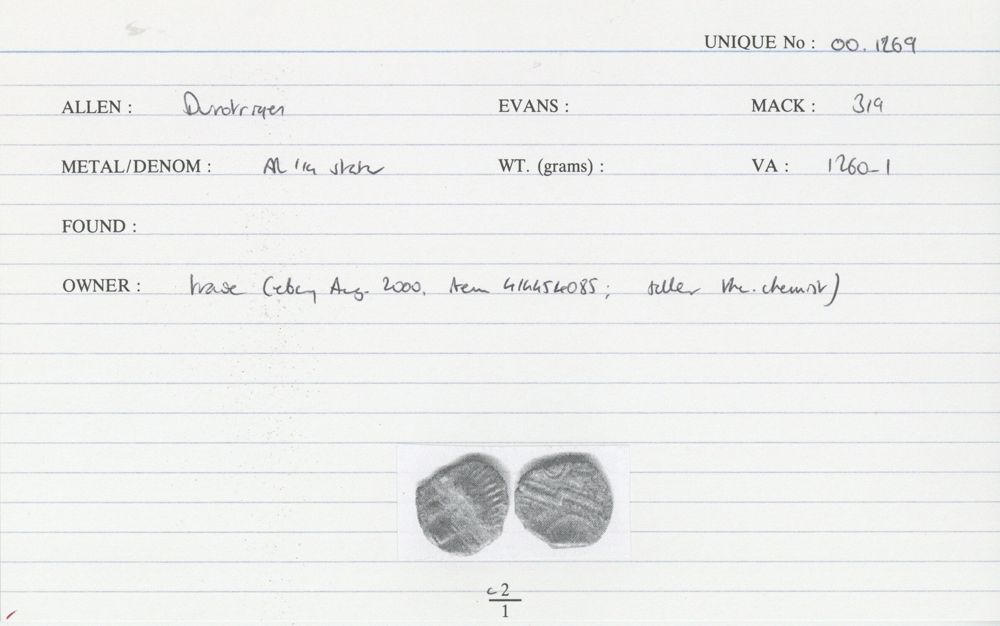 UNIQUE No : 00.1269
ALLEN : Durotriges EVANS : MACK : 319
METAL/DENOM : AR 1/4 stater WT. (grams) : VA : 1260-1
FOUND :
OWNER : trade (ebay Aug. 2000, item 414454085; seller the.chemist)
c2
1